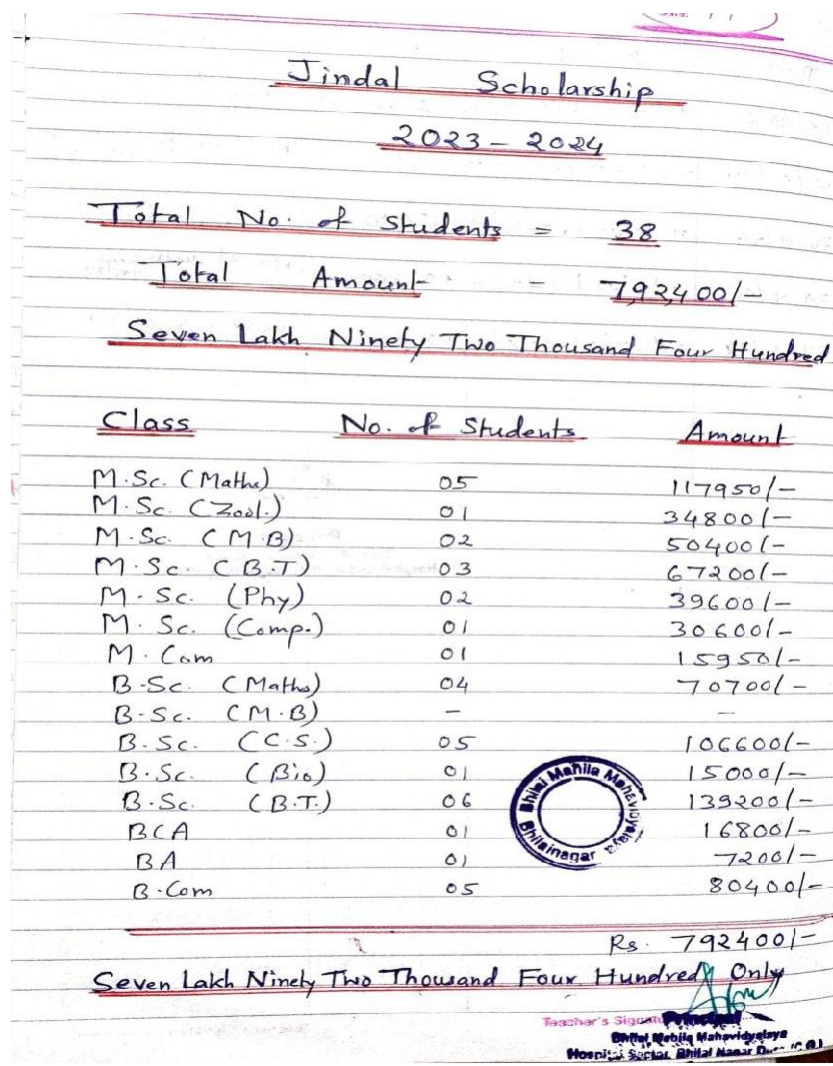 Jindal Scholarship
2023 - 2024
Total No. of Students = 38
Total Amount - 7,92,400/-
Seven Lakh Ninety Two Thousand Four Hundred
Class No. of Students Amount
M.Sc. (Maths) 05 117950/-
M.Sc. (Zool.) 01 34800/-
M.Sc. (M.B) 02 50400/-
M.Sc (B.T) 03 67200/-
M.Sc. (Phy) 02 39600/-
M.Sc. (Comp.) 01 30600/-
M.Com 01 15950/-
B.Sc. (Maths) 04 70700/-
B.Sc. (M.B) - -
B.Sc. (C.S.) 05 106600/-
B.Sc. (Bio) 01 15000/-
B.Sc. (B.T.) 06 139200/-
BCA 01 16800/-
BA 01 7200/-
B.Com 05 80400/-
Bhilai Mahila Mahavidyalaya
Bhilainagar
Rs. 792400/-
Seven Lakh Ninety Two Thousand Four Hundred Only
Teacher's Principal
Bhilai Mahila Mahavidyalaya
Hospital Sector, Bhilai Nagar